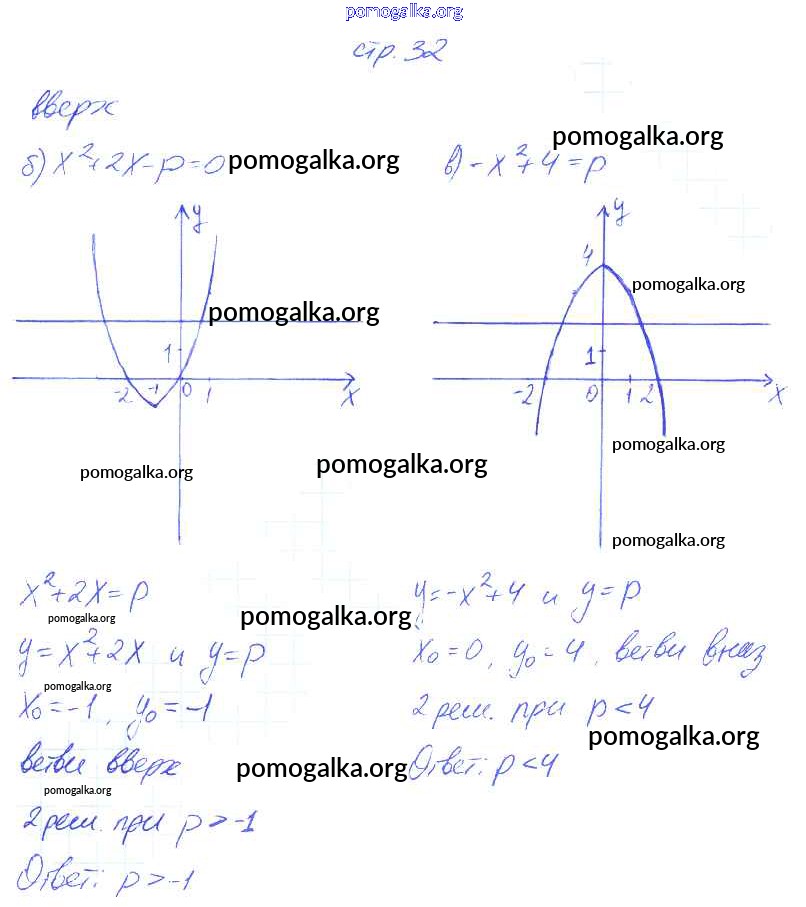 pomogalka.org
стр. 32
вверх
б) x²+2x-p=0 pomogalka.org
в) -x²+4=p pomogalka.org
y
pomogalka.org
1
-2 -1 0 1 x
pomogalka.org
y
4
pomogalka.org
1
-2 0 1 2 x
pomogalka.org
pomogalka.org
pomogalka.org
x²+2x=p
pomogalka.org
y=x²+2x и y=p
pomogalka.org
x₀=-1, y₀=-1
ветви вверх
pomogalka.org
pomogalka.org
2 реш. при p>-1
Ответ: p>-1
pomogalka.org
y=-x²+4 и y=p
x₀=0, y₀=4, ветви вниз
2 реш. при p<4
pomogalka.org
Ответ: p<4